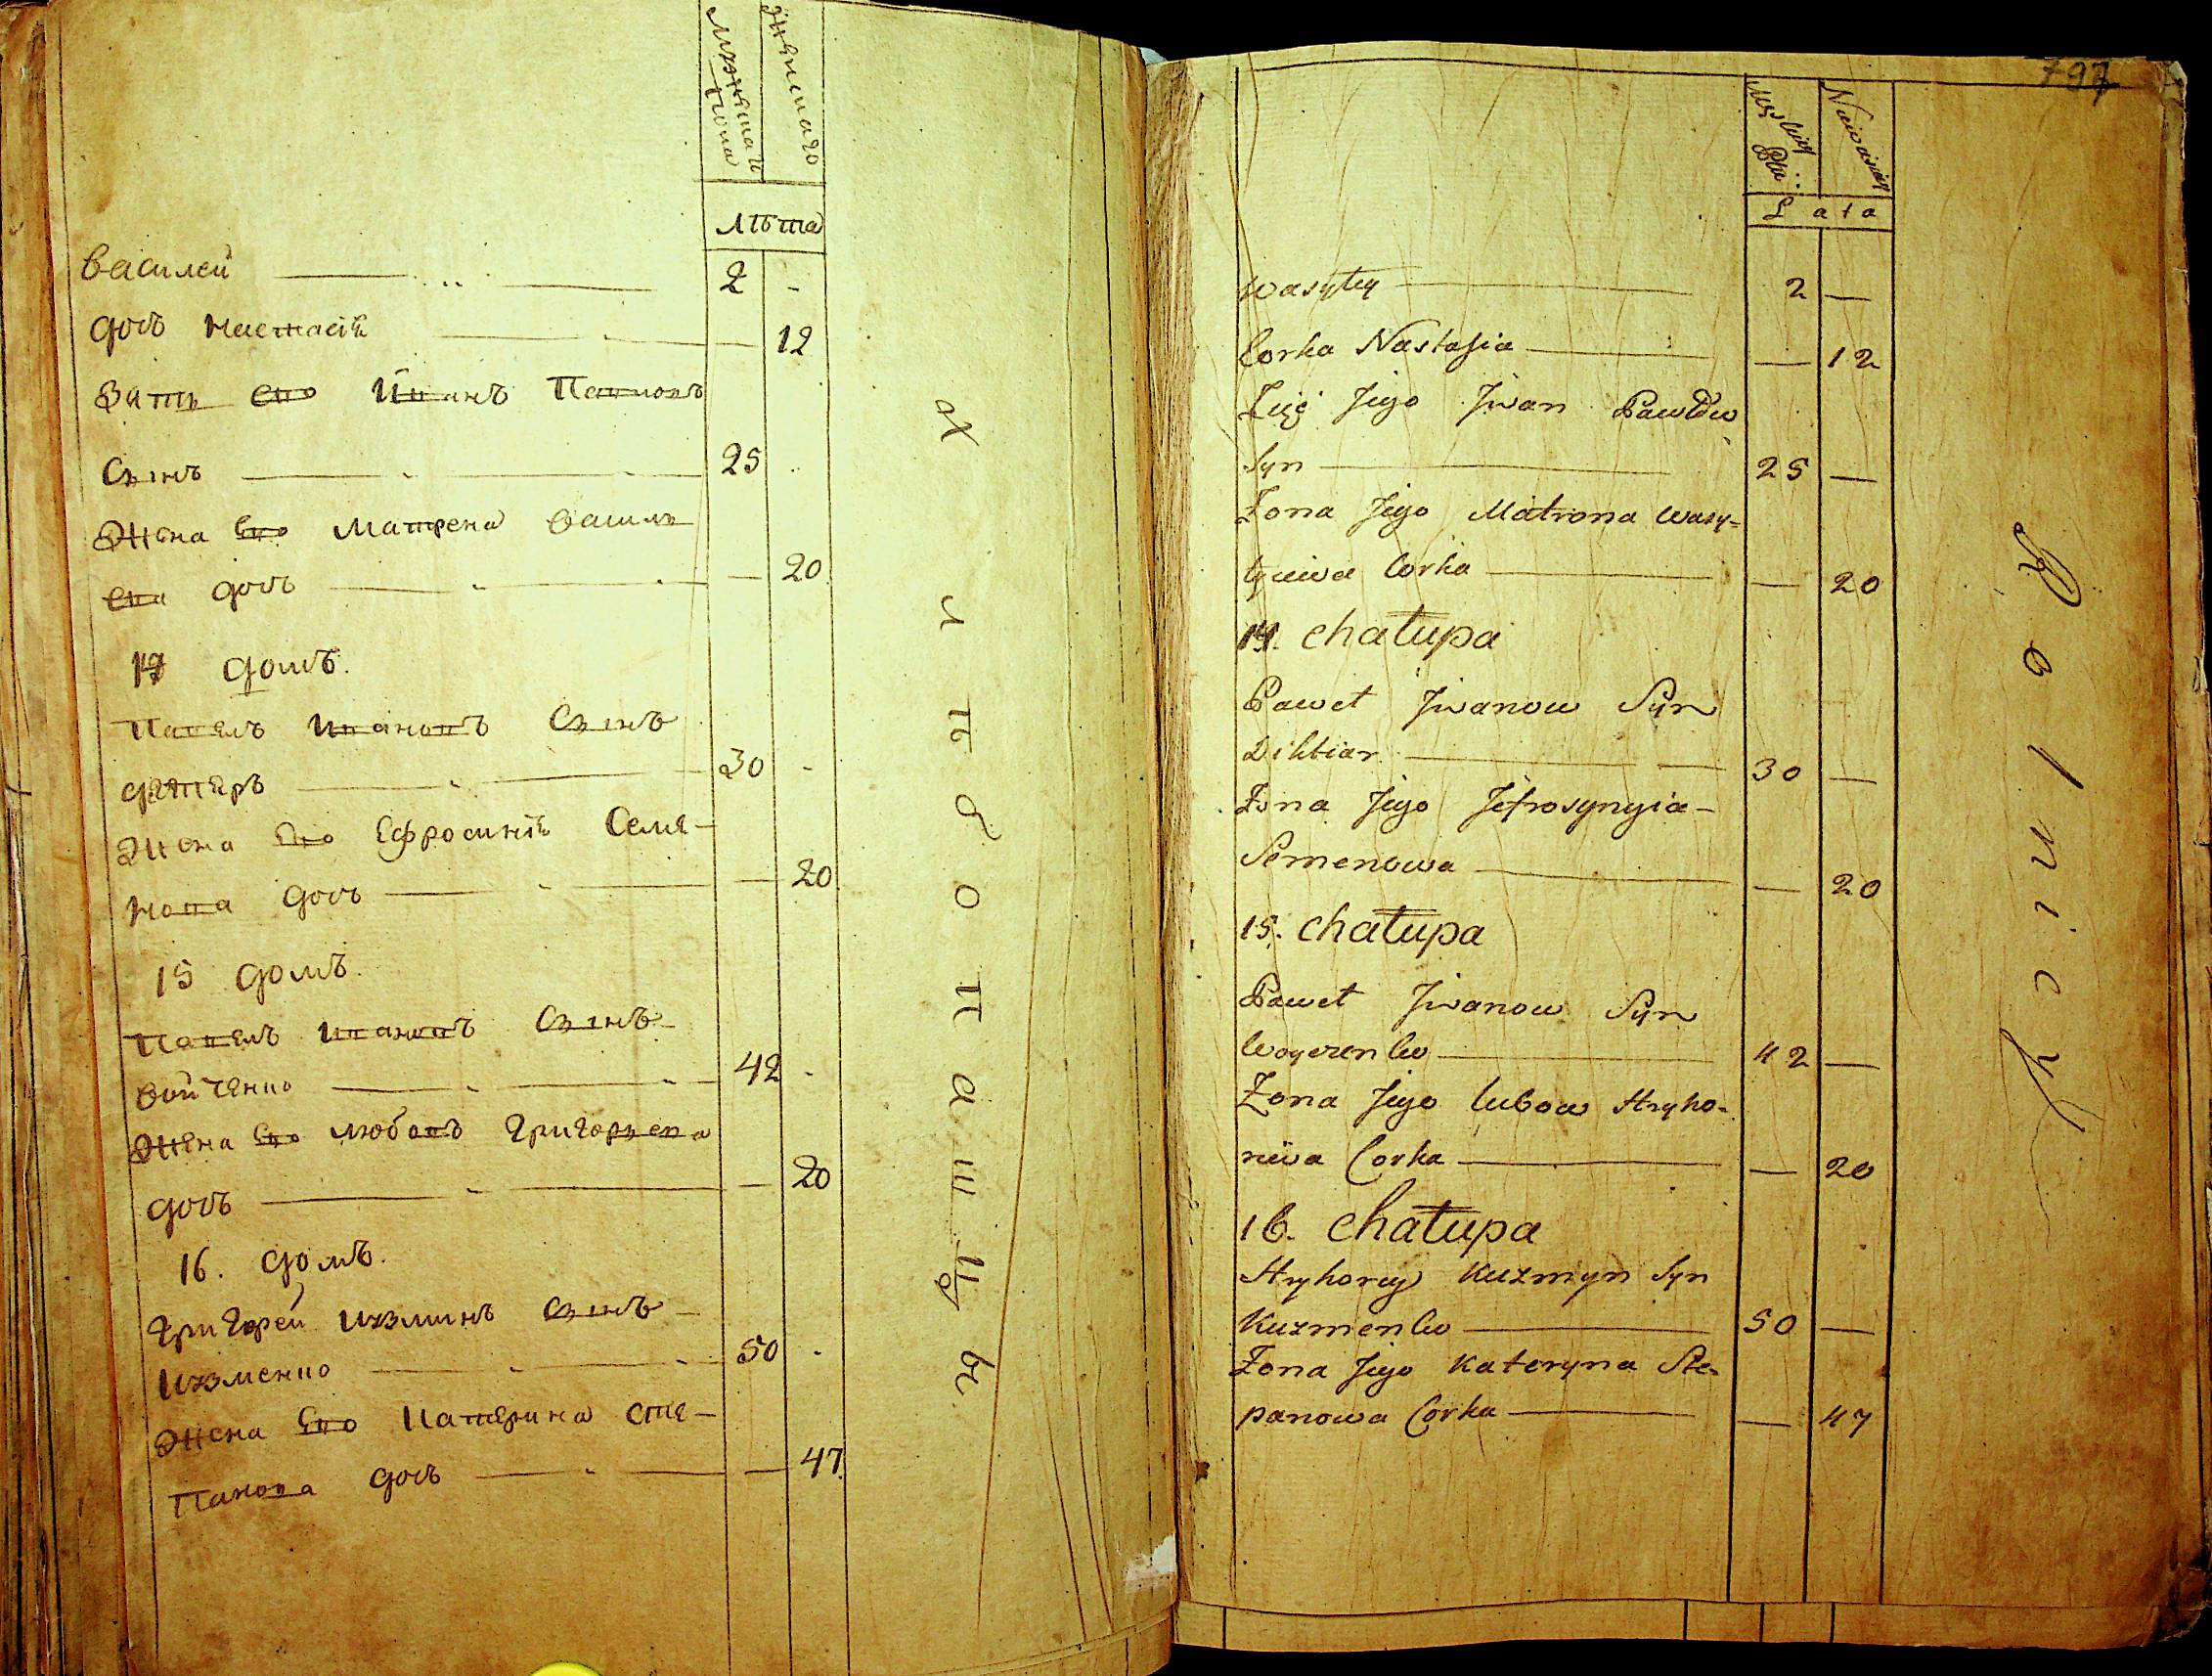 Мужеска
Пола
Женскаго
Лѣта
Василей 2 -
дочь Настасія — 12
Зять его Иванъ Павловъ
Сынъ 25
Жена его Матрена Василь
ева дочь — 20
14 домъ.
Павелъ Ивановъ Сынъ
дегтяръ 30 -
Жена его Ефросинія Семе-
нова дочь — 20
15 домъ.
Павелъ Ивановъ Сынъ
Войченко 42 -
Жена его Любовь Григорьева
дочь — 20
16. домъ.
Григорей Кузминъ Сынъ
Кузменко 50 -
Жена его Катерина Сте-
панова дочь — 47
Хлѣбопашцы
797
Niewieściey
Lata
Wasyley 2 —
Corka Nastasia — 12
Zięć Jego Jwan Pawłów
Syn 25 —
Żona Jego Matrona Wasy=
lyiewa Corka — 20
14. Chałupa
Paweł Jwanow Syn
Dihtiar 30 —
Żona Jego Jefrosynyia
Semenowa — 20
15. Chałupa
Paweł Jwanow Syn
Woyczenko 42 —
Żona Jego Lubow Hryho-
riiwa Corka — 20
16. Chałupa
Hryhorey Kuzmyn Syn
Kuzmenko 50 —
Żona Jego Kateryna Ste-
panowa Corka — 47
Rolnicy